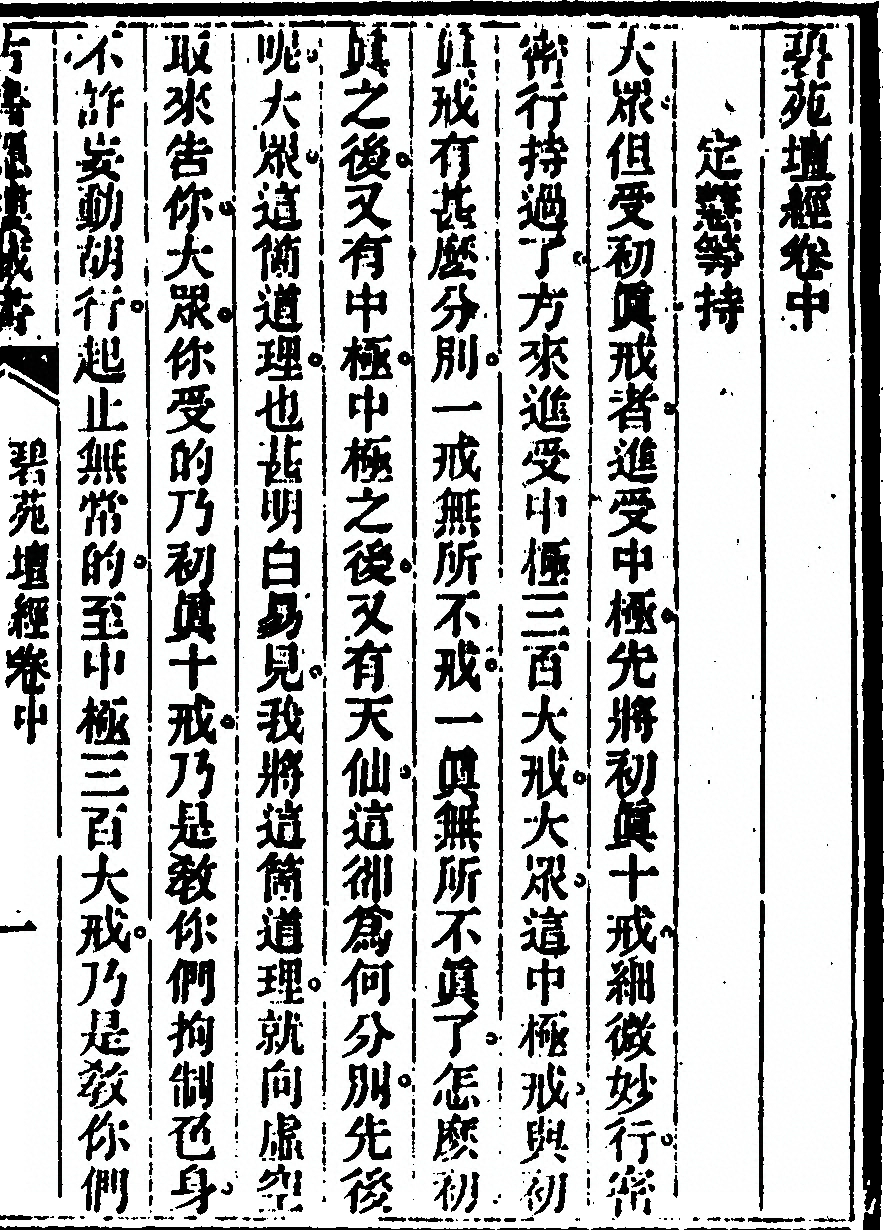 碧苑壇經卷中
定慧等持
大眾但受初眞戒者進受中極先將初眞十戒細微妙行密
密行持過了方來進受中極三百大戒大眾這中極戒與初
眞戒有甚麽分別一戒無所不戒一眞無所不眞了怎麽初
眞之後又有中極中極之後又有天仙這卻爲何分別先後
呢大眾這箇道理也甚明白易見我將這箇道理就向虛空
取來告你大眾你受的乃初眞十戒乃是敎你們拘制色身
不許妄動胡行起止無常的至中極三百大戒乃是敎你們
碧苑壇經卷中
一